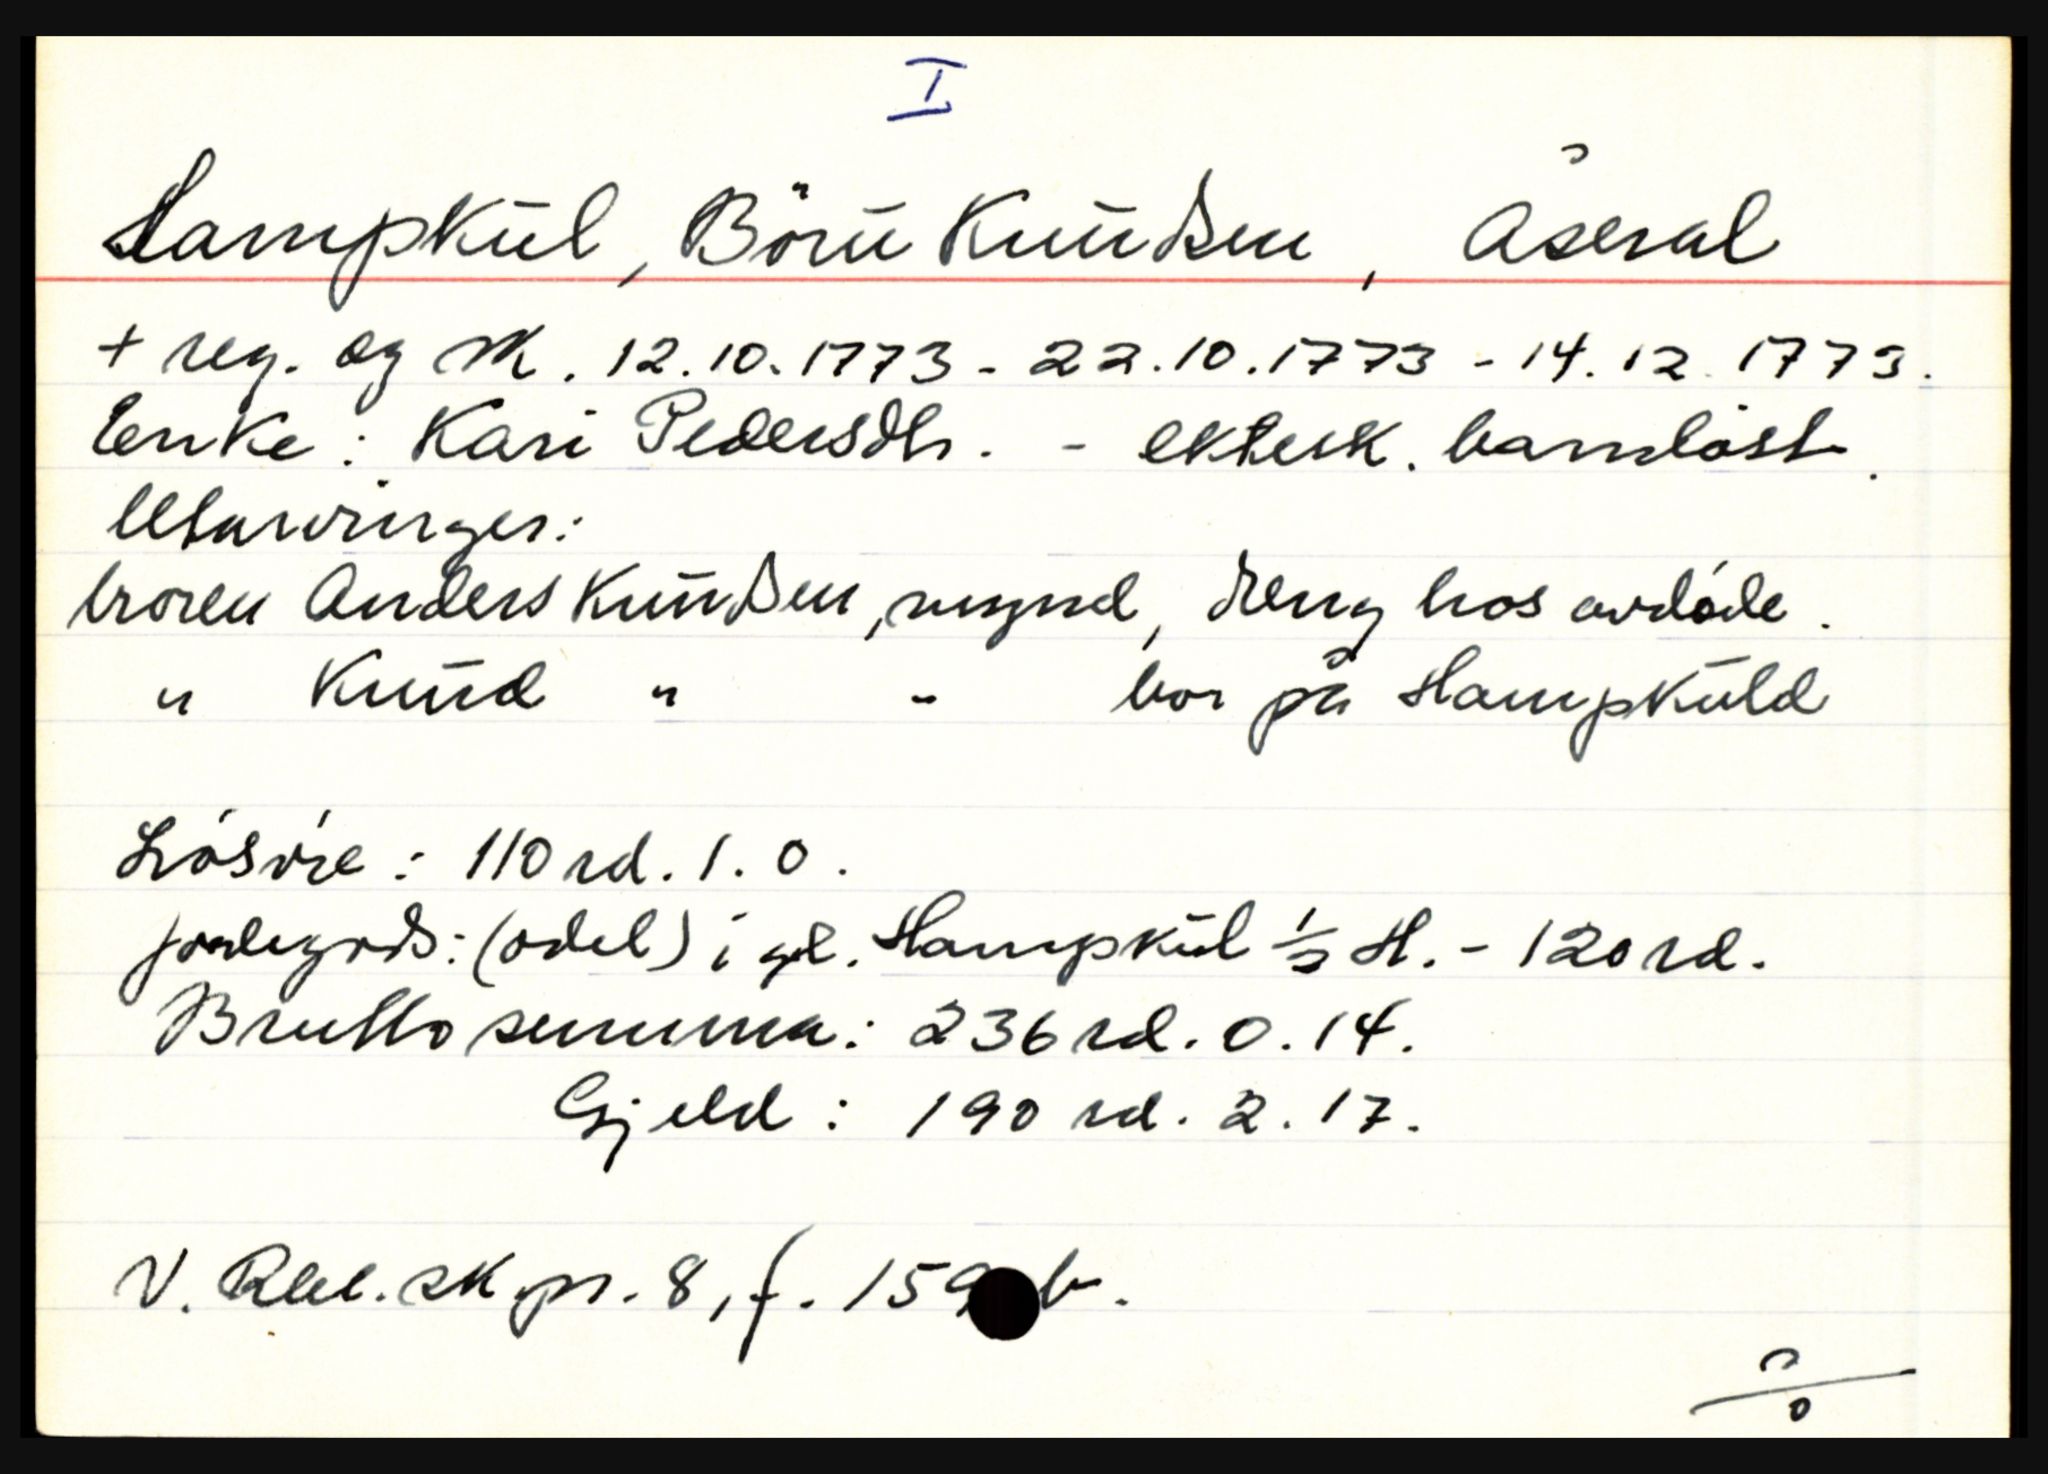 I
Hampkul, Böru Knudsen, Åseral
+ reg. og sk. 12.10.1773 - 22.10.1773 - 14.12.1773.
Enke: Kari Pedersdtr. - ektesk. barnløst.
Utarvinger:
broren Anders Knudsen, mynd, dreng hos avdøde.
" Knud " - bor på Hampkuld
Løsøre: 110 rd. 1. 0.
jordegods: (odel) i gd. Hampkul 1/2 H. - 120 rd.
Brutto summa: 236 rd. 0. 14.
Gjeld: 190 rd. 2. 17.
V. Rbl. sk.pr. 8, f. 159 b.